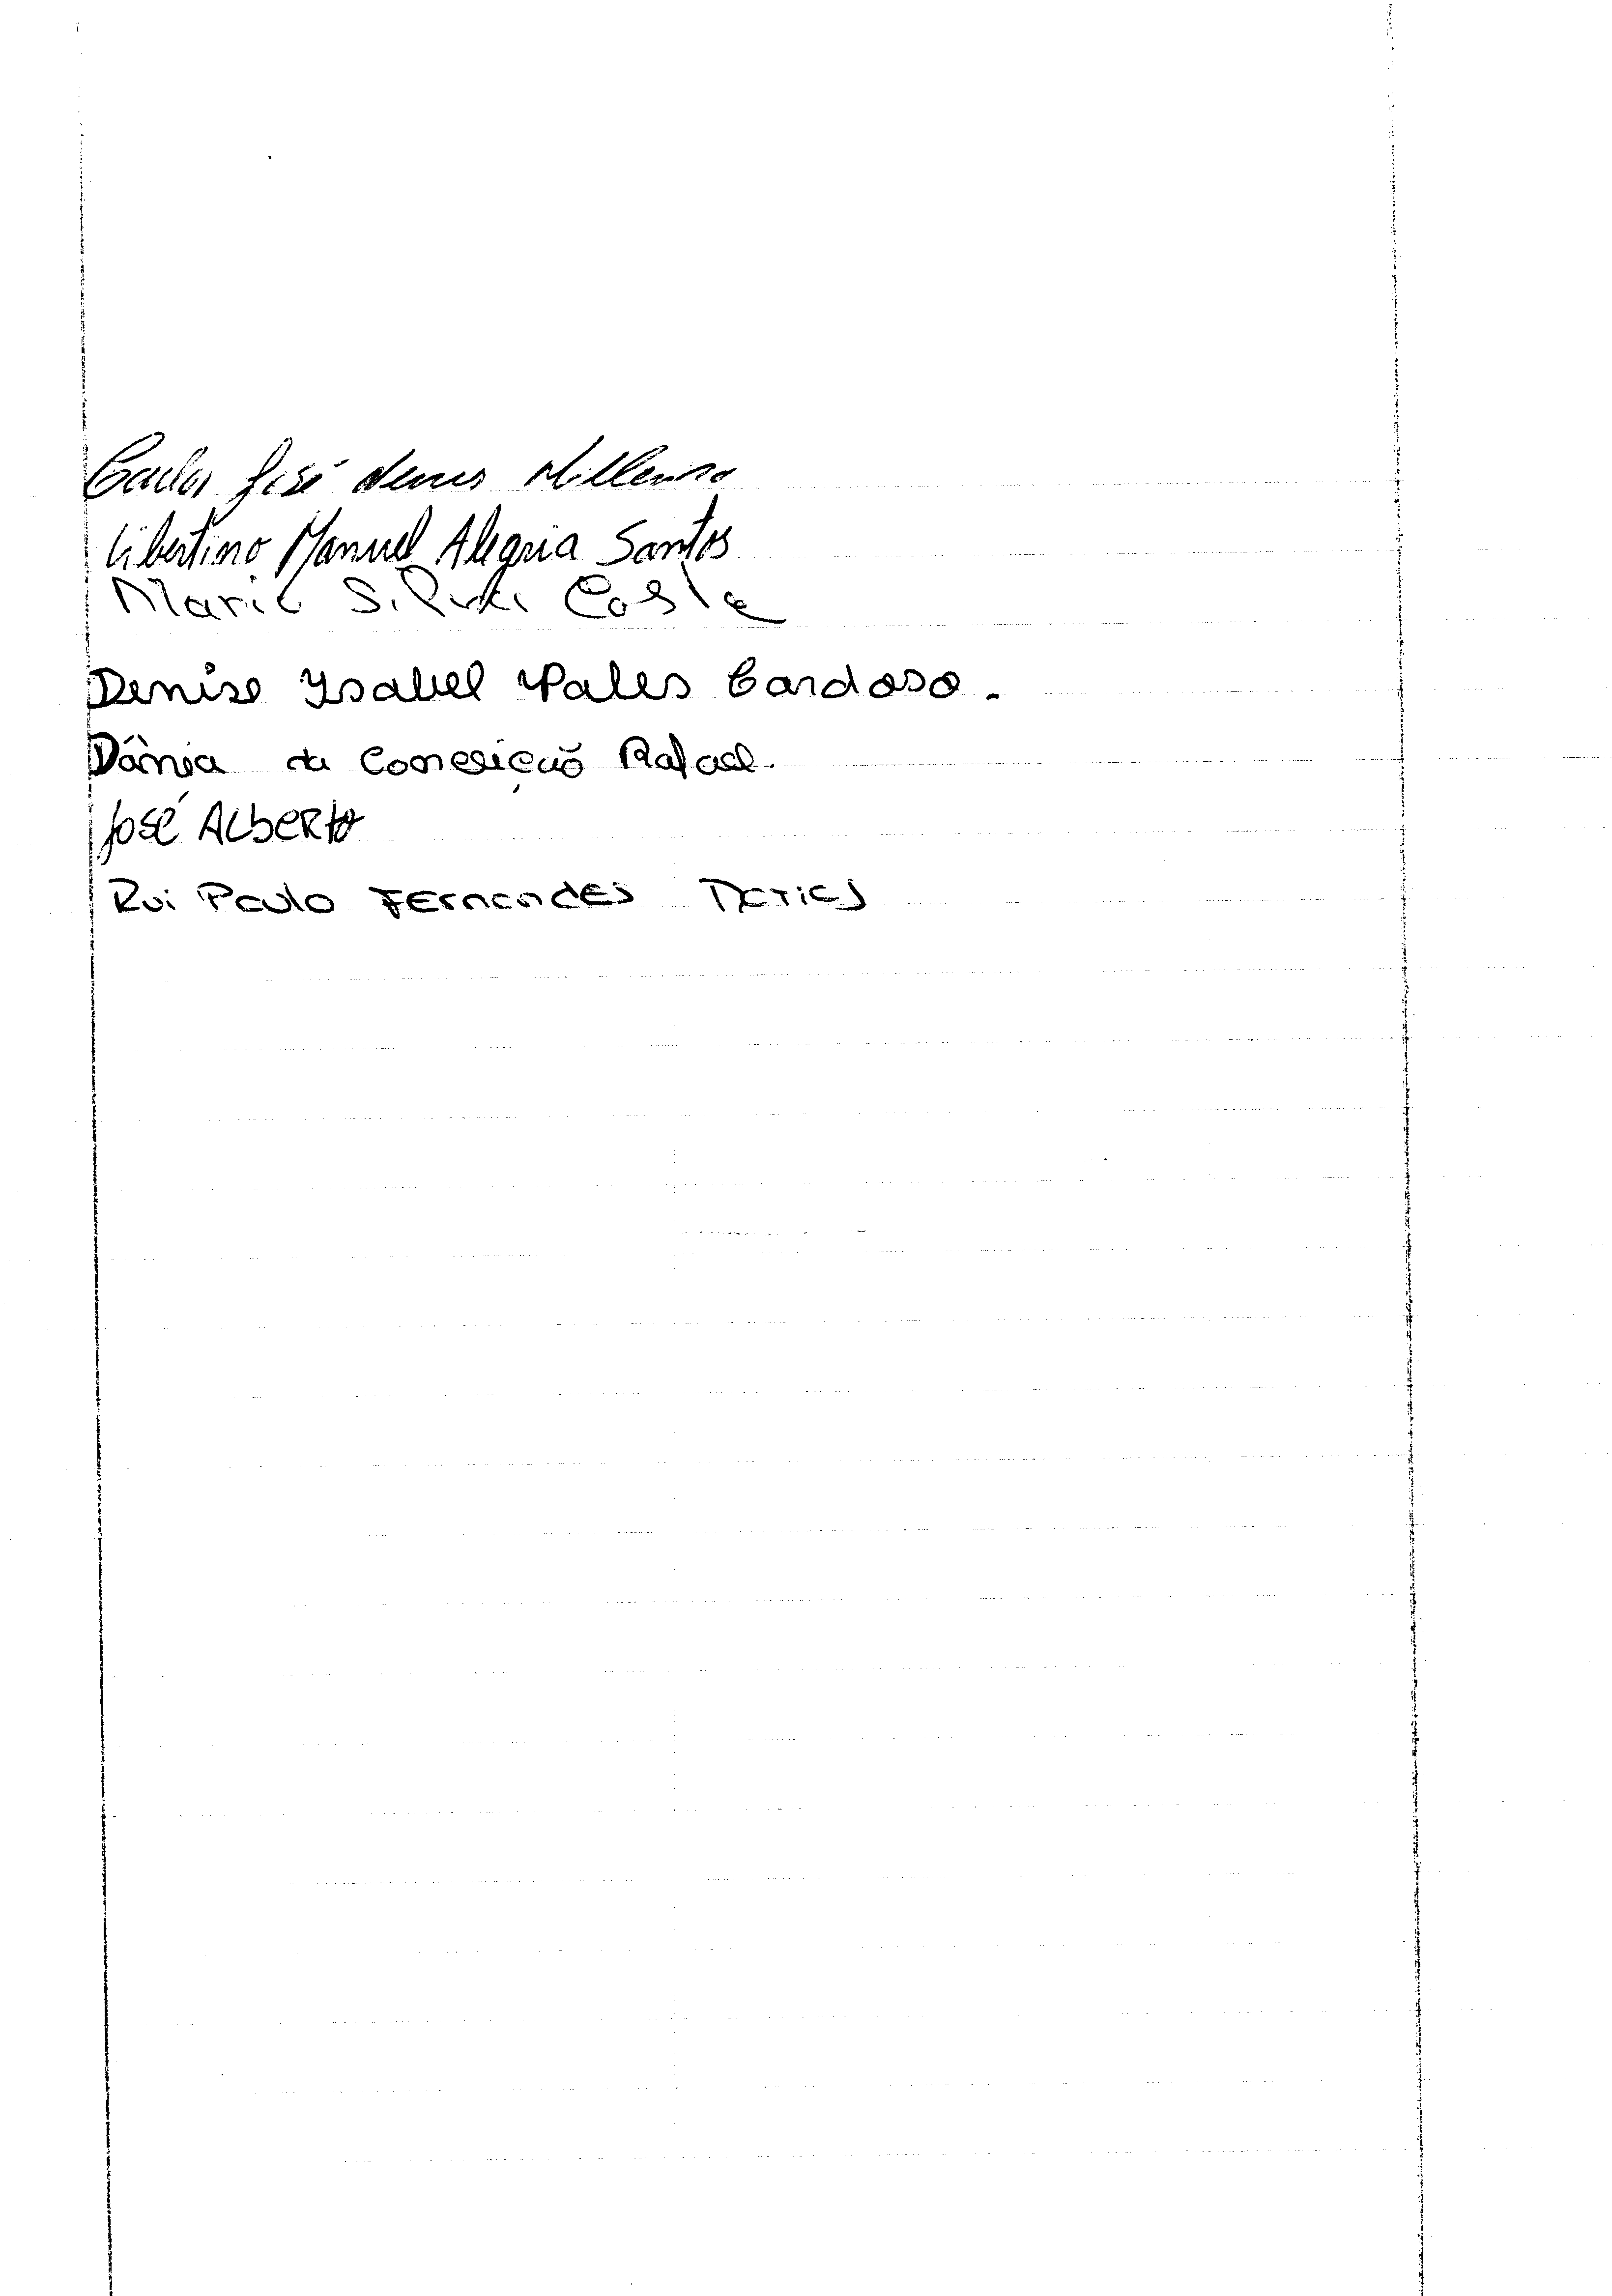 Carlos José
Libertino Manuel Alegria Santos
Maria Costa
Denise Isabel Vales Cardoso.
Vânia da Conceição Rafael.
José Alberto
Rui Paulo Fernandes